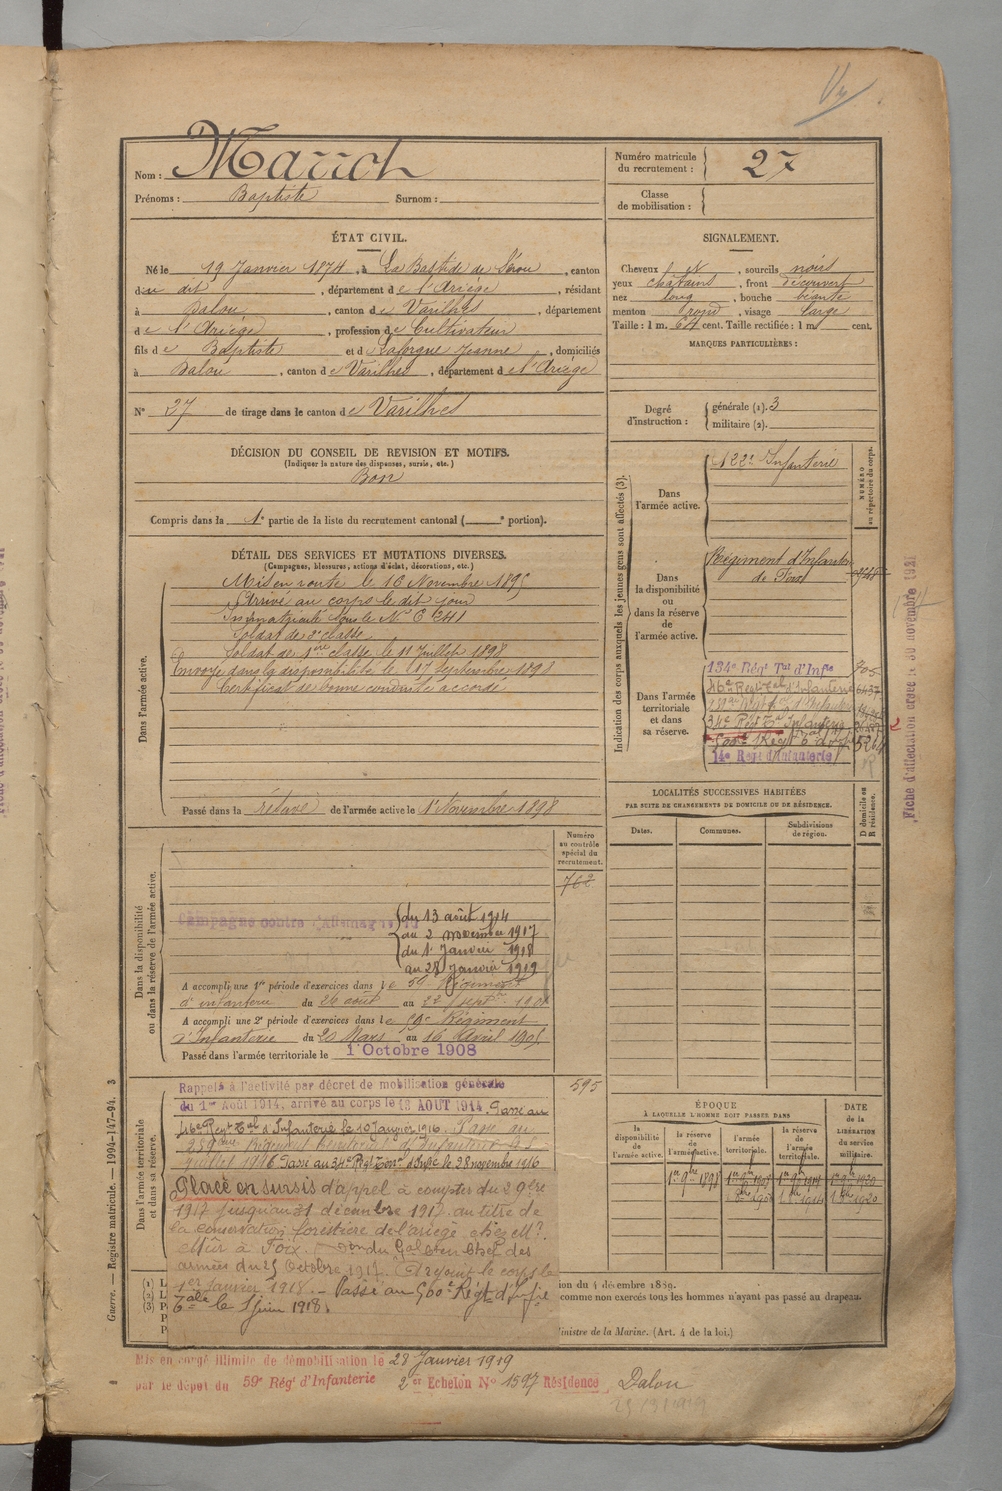 Nom : Marrot
Prénoms : Baptiste Surnom :
Numéro matricule du recrutement : 27
Classe de mobilisation :
ÉTAT CIVIL.
Né le 19 Janvier 1874, à La Bastide de Sérou, canton
du dit, département de l'Ariège, résidant
à Dalou, canton de Varilhes, département
de l'Ariège, profession de Cultivateur
fils de Baptiste et de Laforgue Jeanne, domiciliés
à Dalou, canton de Varilhes, département de l'Ariège
N° 27 de tirage dans le canton de Varilhes
SIGNALEMENT.
Cheveux et, sourcils noirs
yeux chatains, front découvert
nez long, bouche béante
menton rond, visage large
Taille : 1 m. 64 cent. Taille rectifiée : 1 m cent.
MARQUES PARTICULIÈRES :
Degré d'instruction : générale (1). 3
militaire (2).
DÉCISION DU CONSEIL DE REVISION ET MOTIFS.
(Indiquer la nature des dispenses, sursis, etc.)
Bon
Compris dans la 1e partie de la liste du recrutement cantonal ( e portion).
DÉTAIL DES SERVICES ET MUTATIONS DIVERSES.
(Campagnes, blessures, actions d'éclat, décorations, etc.)
Dans l'armée active.
Mis en route le 16 Novembre 1895
Arrivé au corps le dit jour
Immatriculé sous le N°
Soldat de 2e classe
Soldat de 1ère classe le 11 Juillet 1898
Envoyé dans la disponibilité le 17 Septembre 1898
Certificat de bonne conduite accordé
Passé dans la réserve de l'armée active le 1er Novembre 1898
Indication des corps auxquels les jeunes gens sont affectés (3).
NUMÉRO au répertoire du corps.
Dans l'armée active.
122e Infanterie
Dans la disponibilité ou dans la réserve de l'armée active.
Régiment d'Infanterie de Foix
Dans l'armée territoriale et dans sa réserve.
134e Régt Tal d'Infie
46e Régt Tal d'Infanterie
34e Régt Tal Infanterie
14e Régt d'Infanterie
Fiche d'affectation créée le 30 novembre 1921
LOCALITÉS SUCCESSIVES HABITÉES
PAR SUITE DE CHANGEMENTS DE DOMICILE OU DE RÉSIDENCE.
Dates. Communes. Subdivisions de région.
D domicile ou R résidence.
Numéro au contrôle spécial du recrutement.
762
Dans la disponibilité ou dans la réserve de l'armée active.
Campagne contre l'Allemagne
du 13 août 1914
au 2 novembre 1917
du 1er Janvier 1918
au 28 Janvier 1919
A accompli une 1re période d'exercices dans le 59e Régiment
d'infanterie du 26 août au 22 septre
A accompli une 2e période d'exercices dans le 59e Régiment
d'Infanterie du 20 Mars au 16 Avril 1905
Passé dans l'armée territoriale le 1er Octobre 1908
595
Dans l'armée territoriale et dans sa réserve.
Rappelé à l'activité par décret de mobilisation générale
du 1er Août 1914, arrivé au corps le 13 AOUT 1914. Passé au
46e Régt Tal d'Infanterie le 10 Janvier 1916. Passé au
juillet 1916 Passé au 34e Régt Terral d'Infie le 28 novembre 1916
Placé en sursis d'appel à compter du 2 9bre
1917 jusqu'au 31 décembre 1917 au titre de
la conservation forestière de l'ariège chez Mr
à Foix. Don du Gal Cten Chef des
armées du 25 Octobre 1917. A rejoint le corps le
1er Janvier 1918. - Passé au 560e Régt d'Infie
Tale le 1 juin 1918.
ÉPOQUE
À LAQUELLE L'HOMME DOIT PASSER DANS
la disponibilité de l'armée active. la réserve de l'armée active. l'armée territoriale. la réserve de l'armée territoriale.
DATE de la LIBÉRATION du service militaire.
1er 9bre 1898
ion du 4 décembre 1889.
comme non exercés tous les hommes n'ayant pas passé au drapeau.
Ministre de la Marine. (Art. 4 de la loi.)
Mis en congé illimité de démobilisation le 28 Janvier 1919
par le dépôt du 59e Régt d'Infanterie 2er Echelon N° 1597 Résidence Dalou
Guerre. — Registre matricule. — 1994-147-94. 3